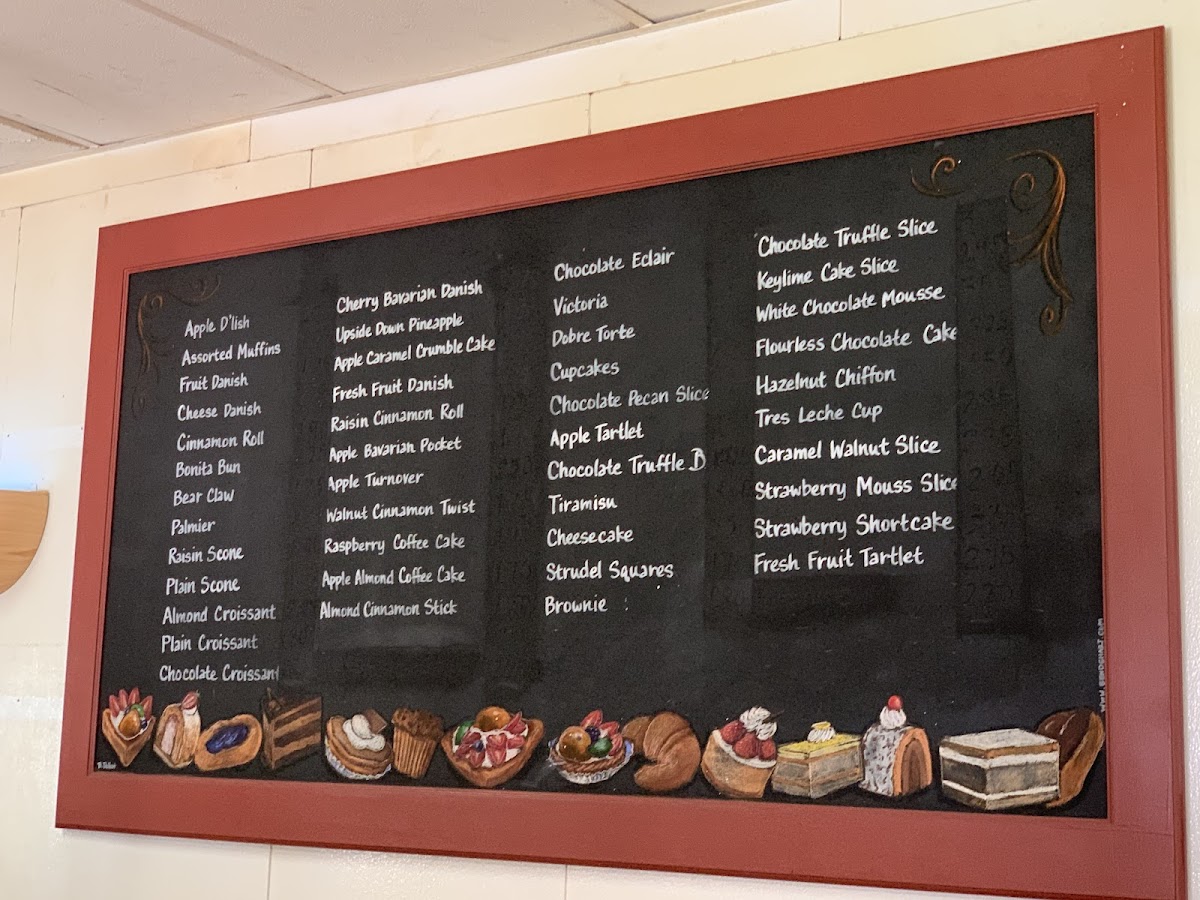 Apple D'lish
Assorted Muffins
Fruit Danish
Cheese Danish
Cinnamon Roll
Bonita Bun
Bear Claw
Palmier
Raisin Scone
Plain Scone
Almond Croissant
Plain Croissant
Chocolate Croissant
Cherry Bavarian Danish
Upside Down Pineapple
Apple Caramel Crumble Cake
Fresh Fruit Danish
Raisin Cinnamon Roll
Apple Bavarian Pocket
Apple Turnover
Walnut Cinnamon Twist
Raspberry Coffee Cake
Apple Almond Coffee Cake
Almond Cinnamon Stick
Chocolate Eclair
Victoria
Dobre Torte
Cupcakes
Chocolate Pecan Slice
Apple Tartlet
Chocolate Truffle B
Tiramisu
Cheesecake
Strudel Squares
Brownie :
Chocolate Truffle Slice
Keylime Cake Slice
White Chocolate Mousse
Flourless Chocolate Cake
Hazelnut Chiffon
Tres Leche Cup
Caramel Walnut Slice
Strawberry Mouss Slice
Strawberry Shortcake
Fresh Fruit Tartlet